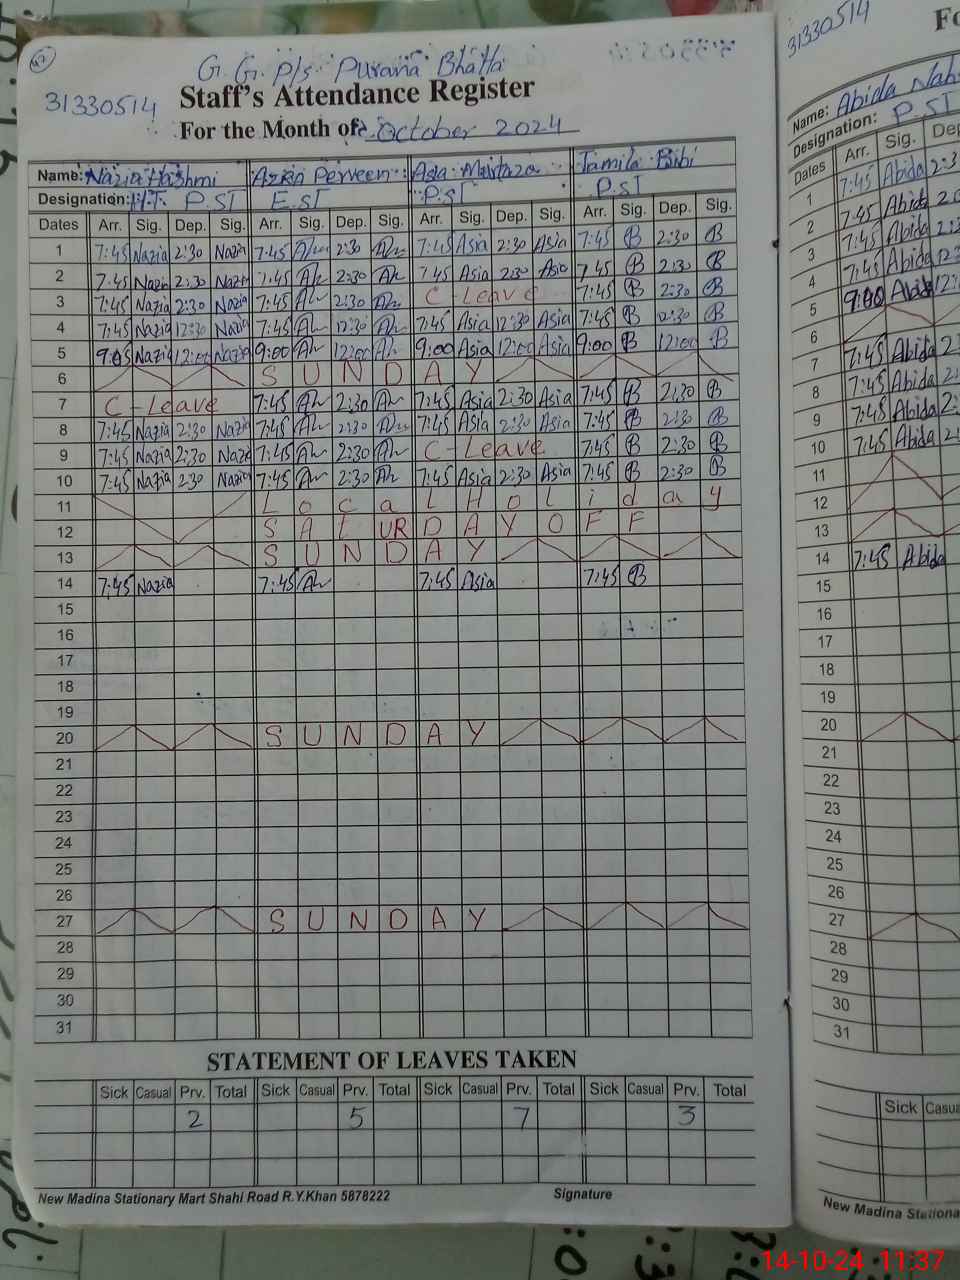 G. G. P/s. Purana Bhatta
31330514 Staff's Attendance Register
For the Month of October 2024
Name: Nazia Hashmi Azra Perveen Asia Murtaza Jamila Bibi
Designation: H.T. P.ST E.ST P.ST P.ST
Dates Arr. Sig. Dep. Sig. Arr. Sig. Dep. Sig. Arr. Sig. Dep. Sig. Arr. Sig. Dep. Sig.
1 7:45 Nazia 2:30 Nazia 7:45 2:30 7:45 Asia 2:30 Asia 7:45 B 2:30 B
2 7:45 Nazia 2:30 Nazia 7:45 2:30 7:45 Asia 2:30 Asia 7:45 B 2:30 B
3 7:45 Nazia 2:30 Nazia 7:45 2:30 C-Leave 7:45 B 2:30 B
4 7:45 Nazia 12:30 Nazia 7:45 12:30 7:45 Asia 12:30 Asia 7:45 B 12:30 B
5 9:05 Nazia 12:00 Nazia 9:00 12:00 9:00 Asia 12:00 Asia 9:00 B 12:00 B
6 S U N D A Y
7 C-Leave 7:45 2:30 7:45 Asia 2:30 Asia 7:45 B 2:30 B
8 7:45 Nazia 2:30 Nazia 7:45 2:30 7:45 Asia 2:30 Asia 7:45 B 2:30 B
9 7:45 Nazia 2:30 Nazia 7:45 2:30 C-Leave 7:45 B 2:30 B
10 7:45 Nazia 2:30 Nazia 7:45 2:30 7:45 Asia 2:30 Asia 7:45 B 2:30 B
11 L o c a L H o l i d a y
12 S A T UR D A Y O F F
13 S U N D A Y
14 7:45 Nazia 7:45 7:45 Asia 7:45 B
15
16
17
18
19
20 S U N D A Y
21
22
23
24
25
26
27 S U N D A Y
28
29
30
31
STATEMENT OF LEAVES TAKEN
Sick Casual Prv. Total Sick Casual Prv. Total Sick Casual Prv. Total Sick Casual Prv. Total
2 5 7 3
New Madina Stationary Mart Shahi Road R.Y.Khan 5878222 Signature
31330514
Name: Abida
Designation: P.ST
Dates Arr. Sig.
1 7:45 Abida
2 7:45 Abida
3 7:45 Abida
4 7:45 Abida
5 9:00 Abida
6
7 7:45 Abida
8 7:45 Abida
9 7:45 Abida
10 7:45 Abida
11
12
13
14 7:45 Abida
15
16
17
18
19
20
21
22
23
24
25
26
27
28
29
30
31
Sick
New Madina
14-10-24 11:37